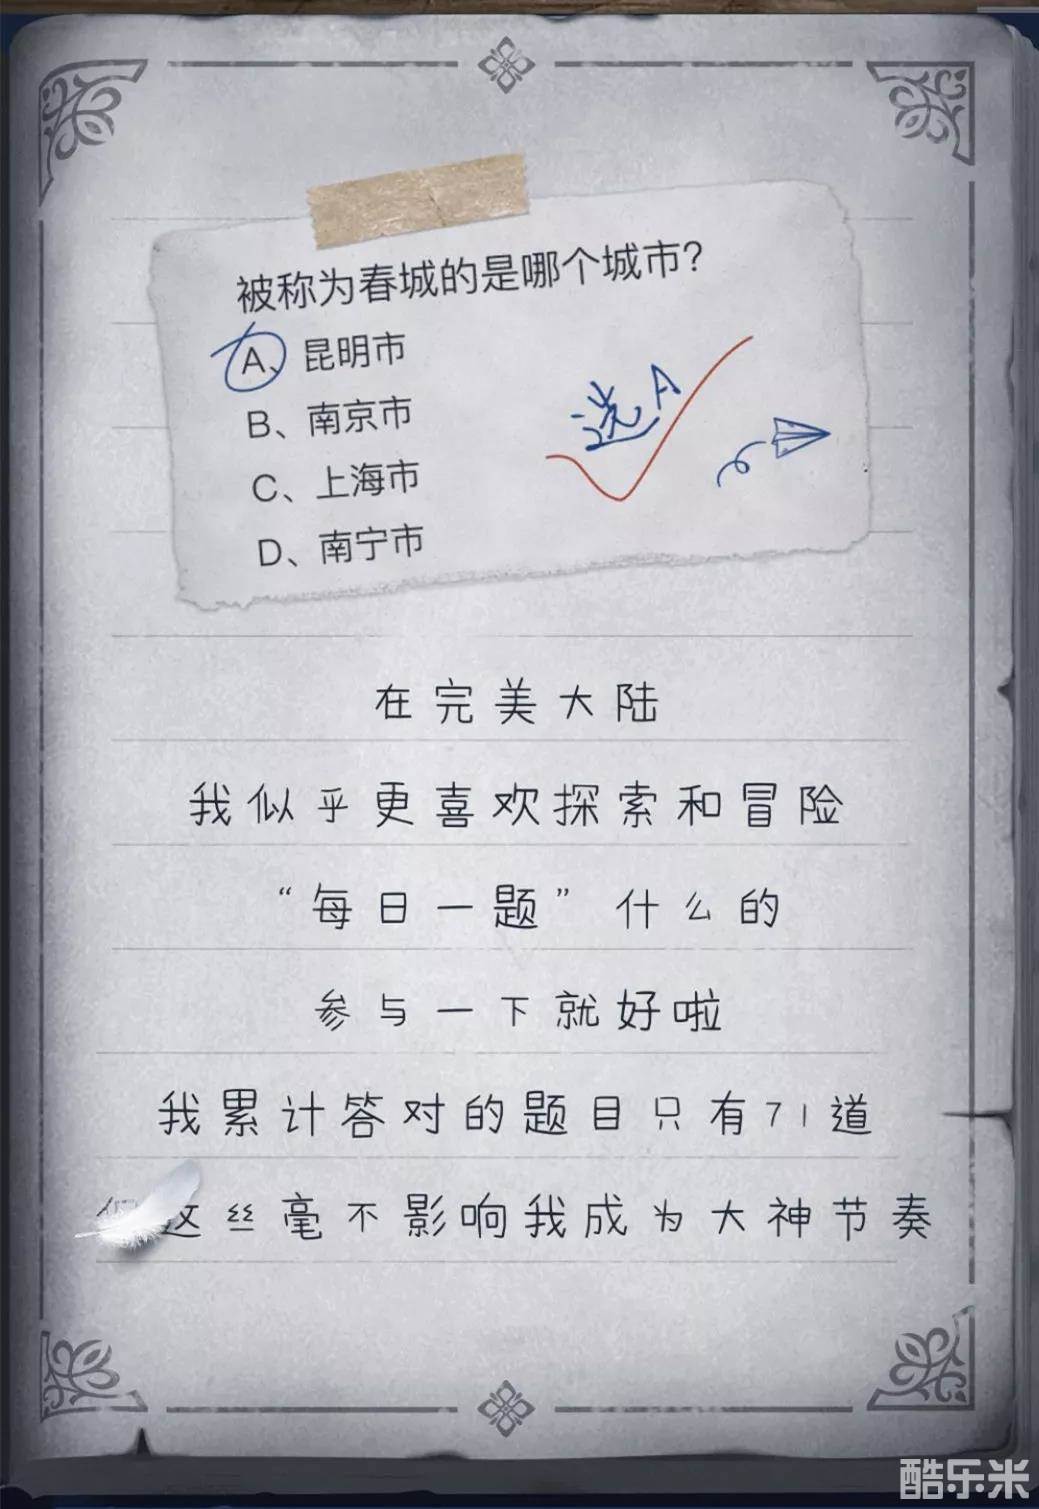 被称为春城的是哪个城市?
A、昆明市
B、南京市
C、上海市
D、南宁市
选A
在完美大陆
我似乎更喜欢探索和冒险
“每日一题”什么的
参与一下就好啦
我累计答对的题目只有71道
这丝毫不影响我成为大神节奏
酷乐米